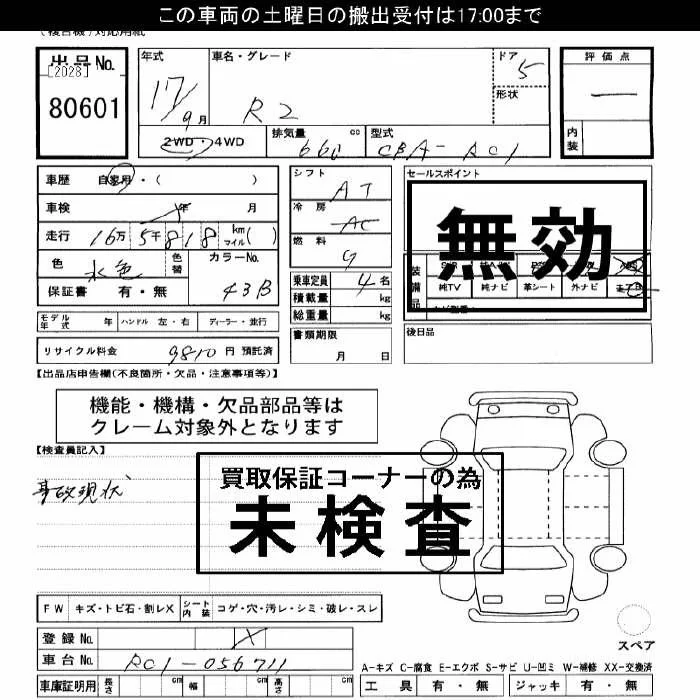 この車両の土曜日の搬出受付は17:00まで
出品No.
[2028]
80601
年式
17/9月
車名・グレード
R2
ドア
5
形状
評価点
—
内装
2WD・4WD
排気量
660
cc
型式
CBA-RC1
車歴 自家用・( )
車検 年 月
走行 16万 5千 818 km マイル( )
色
水色
色替
カラーNo.
43B
保証書 有・無
シフト
AT
冷房
AC
燃料
G
乗車定員 4 名
積載量 kg
総重量 kg
書類期限
月 日
セールスポイント
無効
装備品
純TV 純ナビ 革シート 外ナビ
後日品
モデル年式 年 ハンドル 左・右 ディーラー・並行
リサイクル料金 9810 円 預託済
【出品店申告欄(不良箇所・欠品・注意事項等)】
機能・機構・欠品部品等は
クレーム対象外となります
【検査員記入】
事故現状
買取保証コーナーの為
未検査
FW キズ・トビ石・割レX シート内装 コゲ・穴・汚レ・シミ・破レ・スレ
登録No.
車台No. RC1-056711
車庫証明用 長さ cm 幅 cm 高さ cm
スペア
A-キズ C-腐食 E-エクボ S-サビ U-凹ミ W-補修 XX-交換済
工具 有・無 ジャッキ 有・無